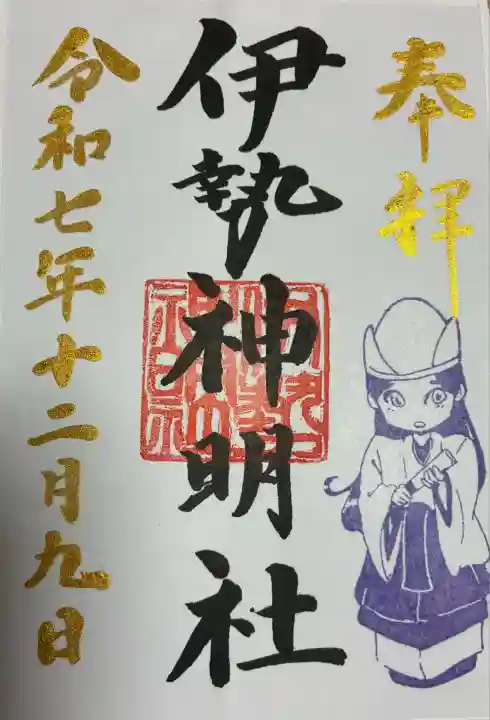 奉拝
伊勢神明社
令和七年十二月九日